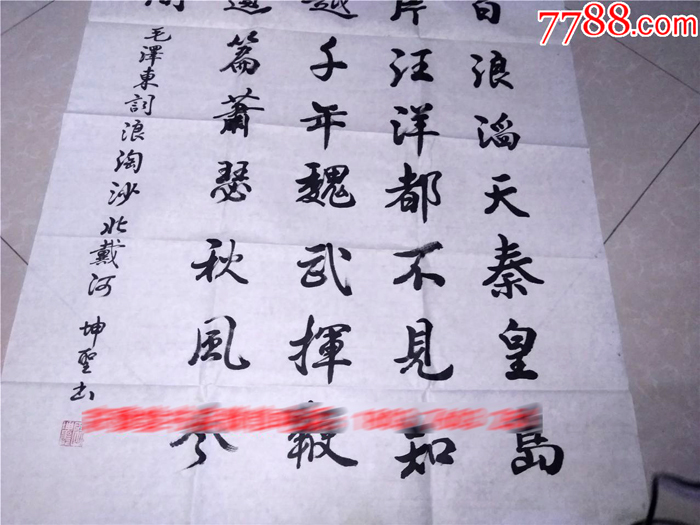 7788.com
白浪滔天秦皇島
片汪洋都不見知
越千年魏武揮鞭
遺篇蕭瑟秋風今
間
毛澤東詞浪淘沙北戴河
坤聖书